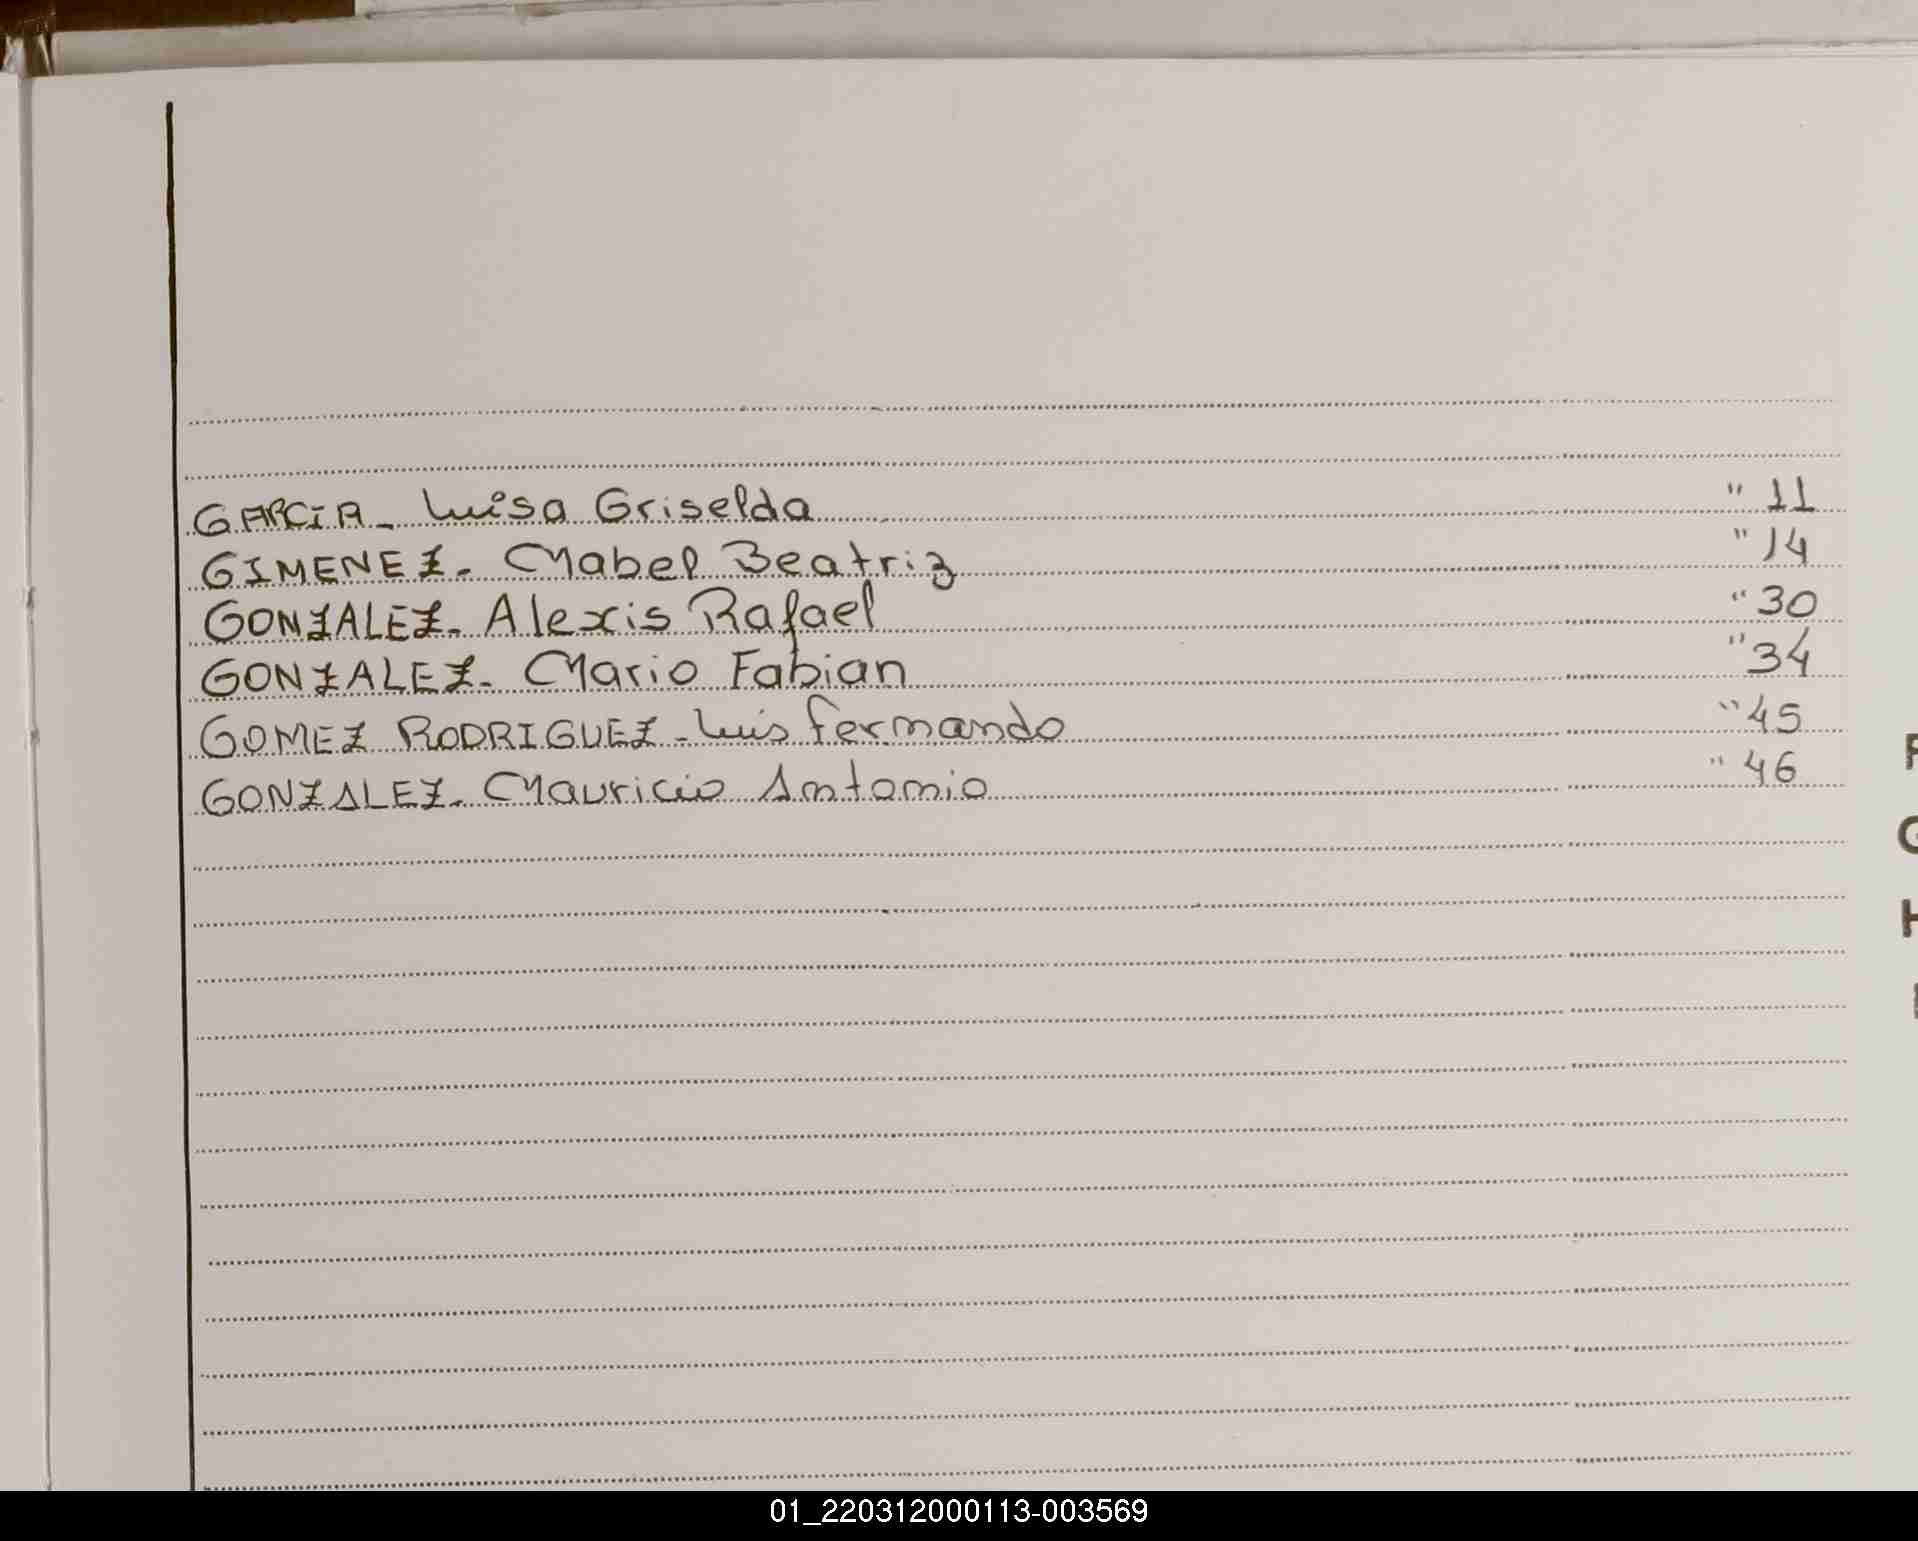 GARCIA_ Luisa Griselda " 11
GIMENEZ. Mabel Beatriz " 14
GONZALEZ. Alexis Rafael " 30
GONZALEZ. Mario Fabian " 34
GOMEZ RODRIGUEZ - Luis Fernando " 45
GONZALEZ. Mauricio Antonio " 46
F
G
H
I
01_220312000113-003569